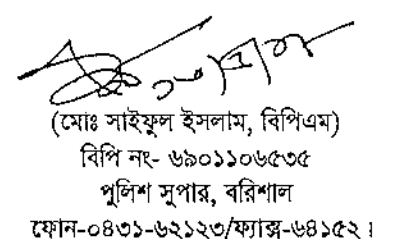 (মোঃ সাইফুল ইসলাম, বিপিএম)
বিপি নং- ৬৯০১১০৬৫৩৫
পুলিশ সুপার, বরিশাল
ফোন-০৪৩১-৬২১২৩/ফ্যাক্স-৬৪১৫২।